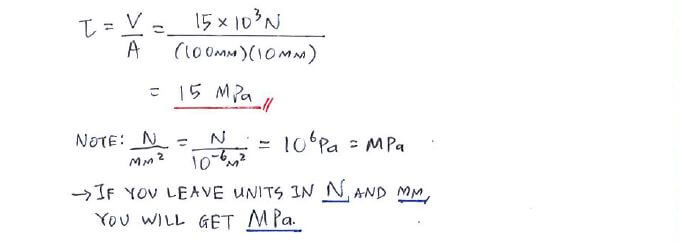 τ = V/A = 15 × 10³ N / (100 MM)(10 MM)
= 15 MPa
NOTE: N/MM² = N/10⁻⁶ M² = 10⁶ Pa = MPa
→ IF YOU LEAVE UNITS IN N AND MM,
YOU WILL GET MPa.